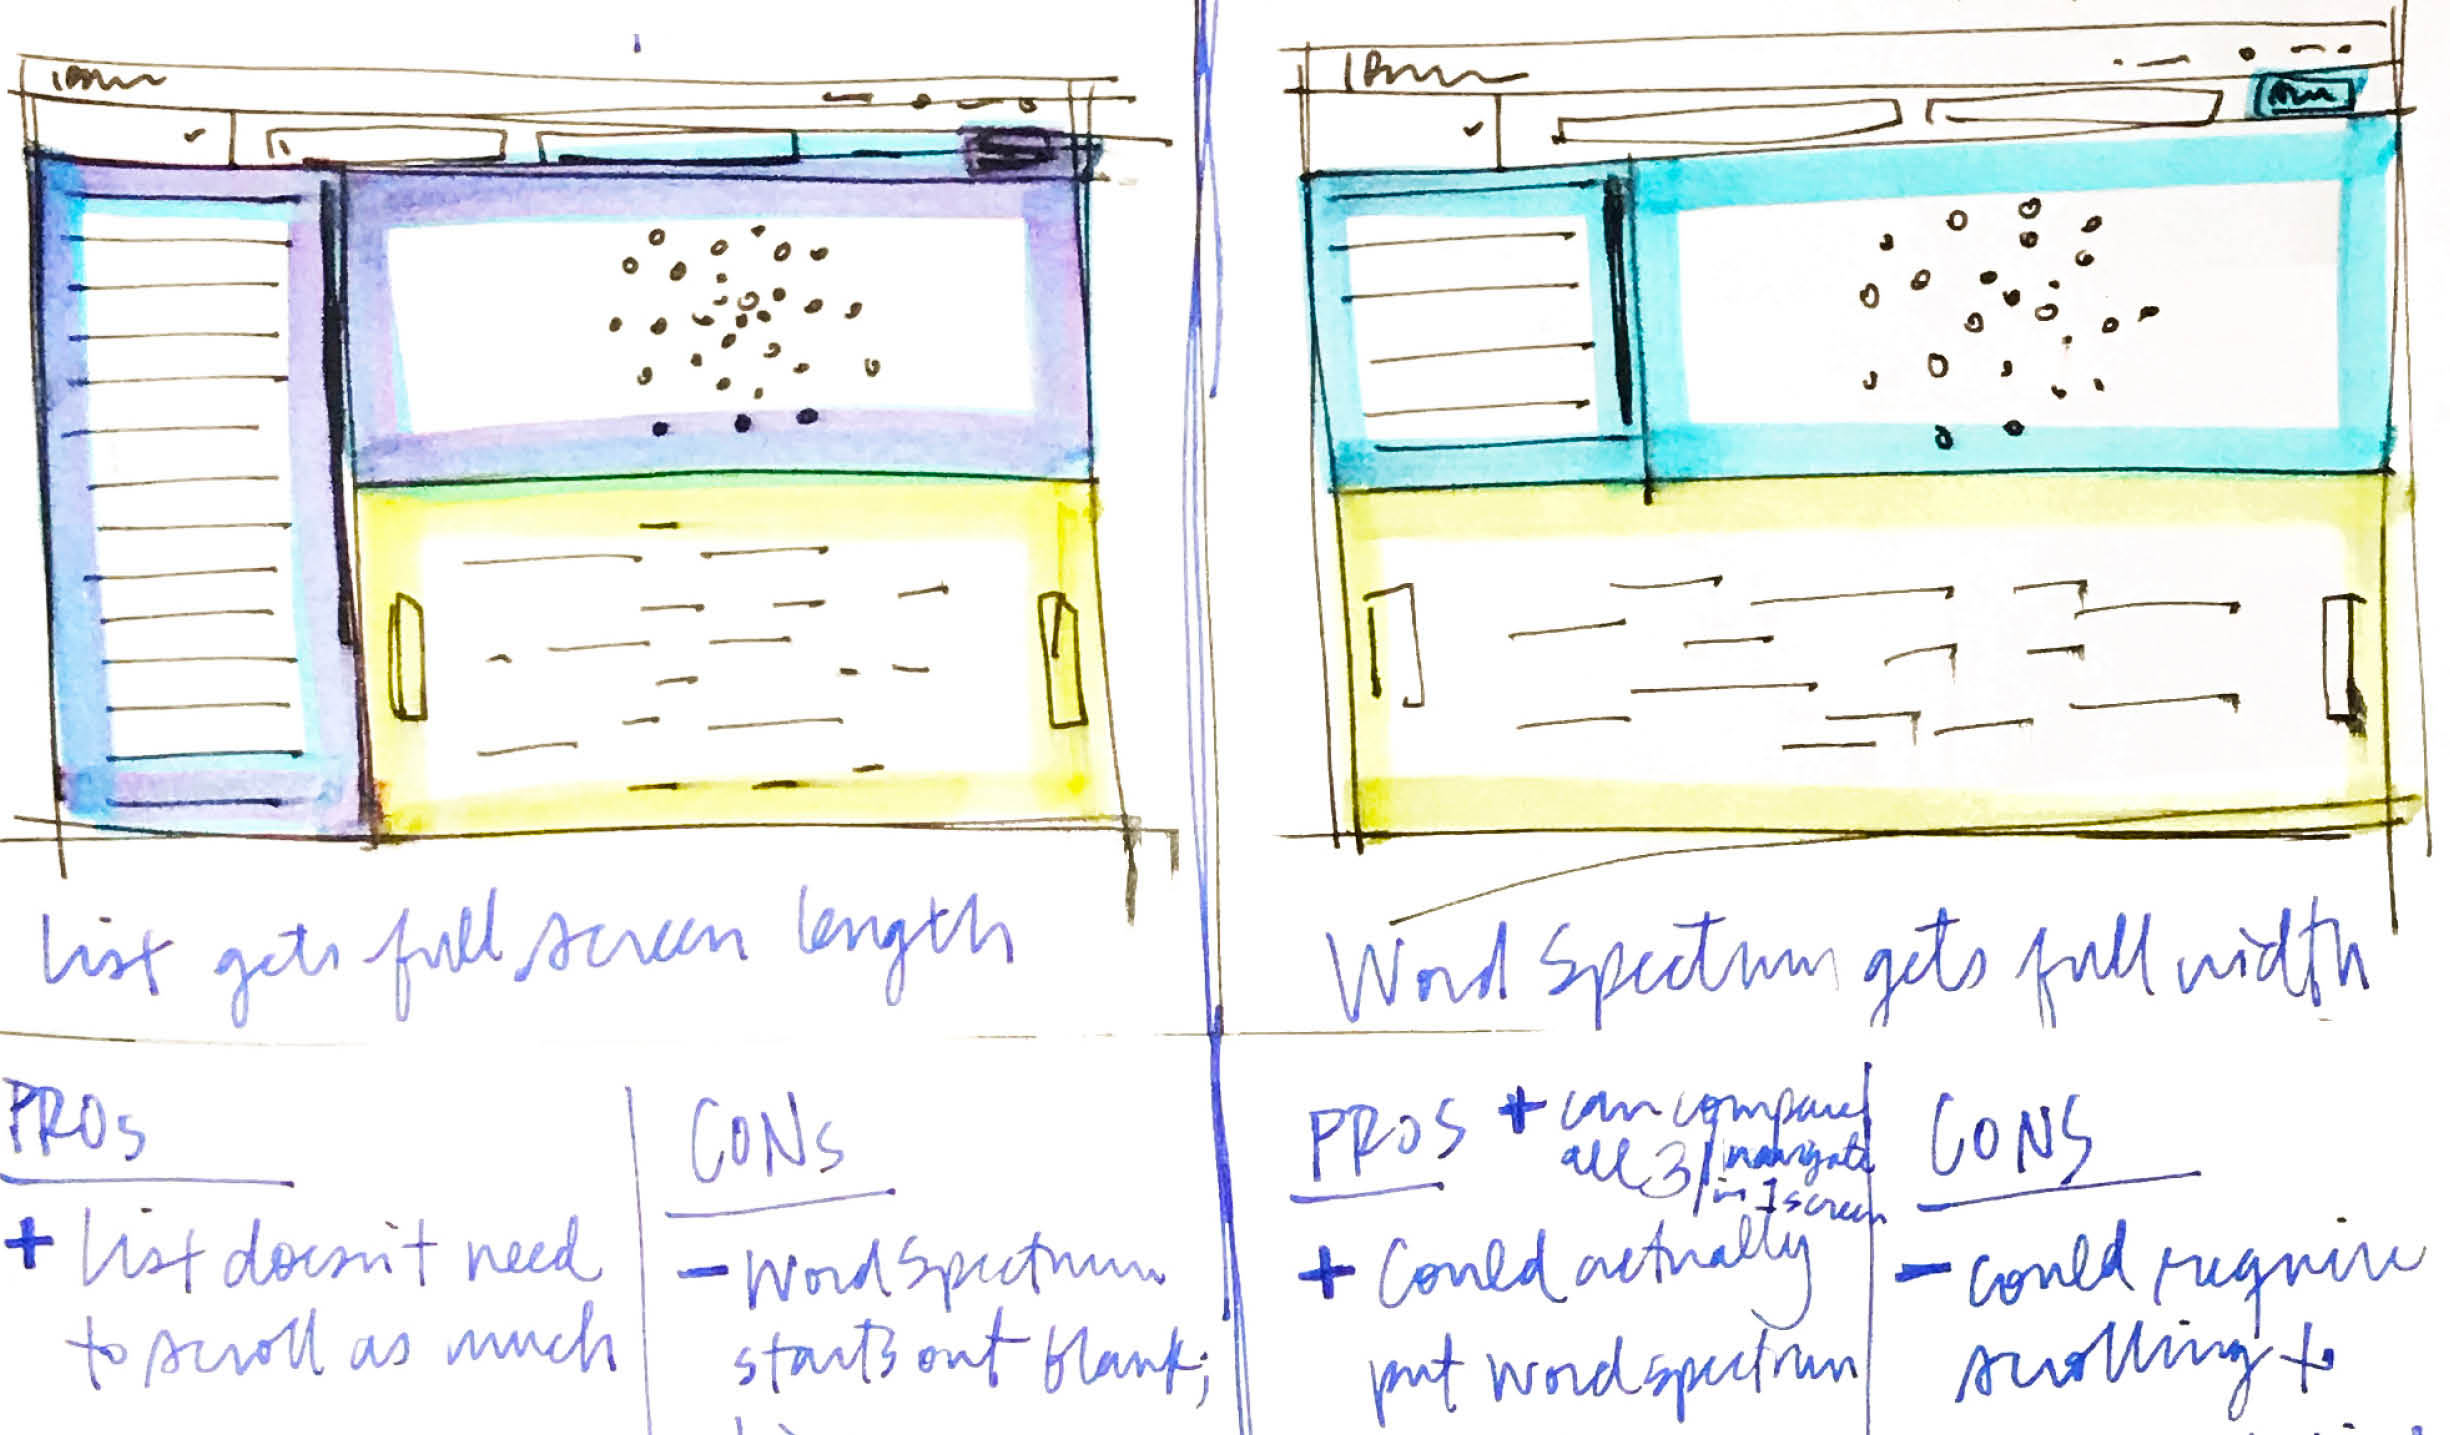 List gets full screen length
PROs
+ List doesn't need
to scroll as much
CONs
- Word Spectrum
starts out blank;
Word Spectrum gets full width
PROS + can compare
all 3/navigate
in 1 screen
+ Could actually
put word spectrum
CONS
- could require
scrolling to